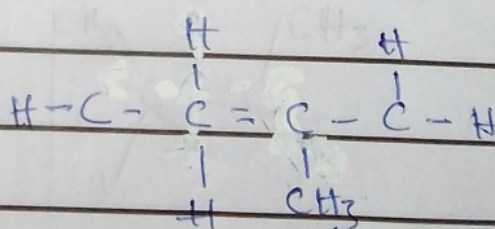 H H
H - C - C = C - C - H
H CH3